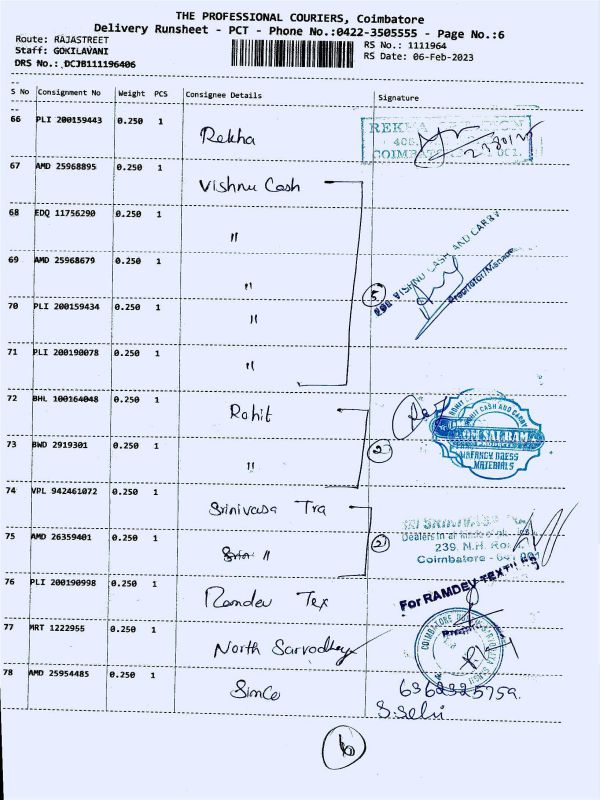 THE PROFESSIONAL COURIERS, Coimbatore
Delivery Runsheet - PCT - Phone No.:0422-3505555 - Page No.:6
Route: RAJASTREET
RS No.: 1111964
Staff: GOKILAVANI
RS Date: 06-Feb-2023
DRS No.: DCJB111196406
S No Consignment No Weight PCS Consignee Details Signature
66 PLI 200159443 0.250 1 Rekha
REKHA
COIMBATORE 001.
67 AMD 25968895 0.250 1 Vishnu Cash
68 EDQ 11756290 0.250 1 "
69 AMD 25968679 0.250 1 "
For VISHNU CASH AND CARRY
Proprietor/Manager
5
70 PLI 200159434 0.250 1 "
71 PLI 200190078 0.250 1 "
72 BHL 100164048 0.250 1 Rohit
ROHIT CASH AND CARRY
OM SAI RAM
FANCY DRESS
MATERIALS
73 BWD 2919301 0.250 1 "
2
74 VPL 942461072 0.250 1 Srinivasa Tra
SRI SRINIVASA
Dealers in all kinds of
239, N.H. Ro
Coimbatore - 641 001
75 AMD 26359401 0.250 1 "
2
76 PLI 200190998 0.250 1 Ramdev Tex
For RAMDEV TEXTILES
77 MRT 1222955 0.250 1 North Sarvodhaya
COIMBATORE
78 AMD 25954485 0.250 1 Simco
6362325759.
S.Selvi
6